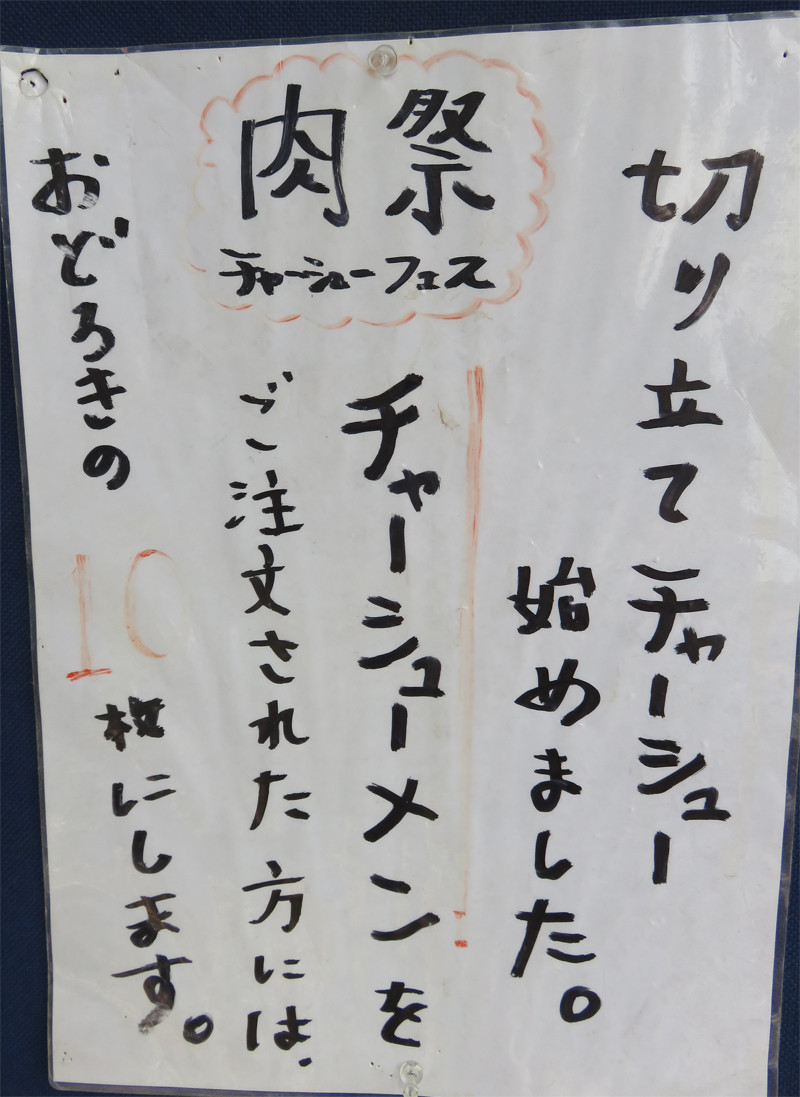 切り立てチャーシュー
始めました。
肉祭
チャーシューフェス
チャーシューメンを
ご注文された方には、
おどろきの10枚にします。